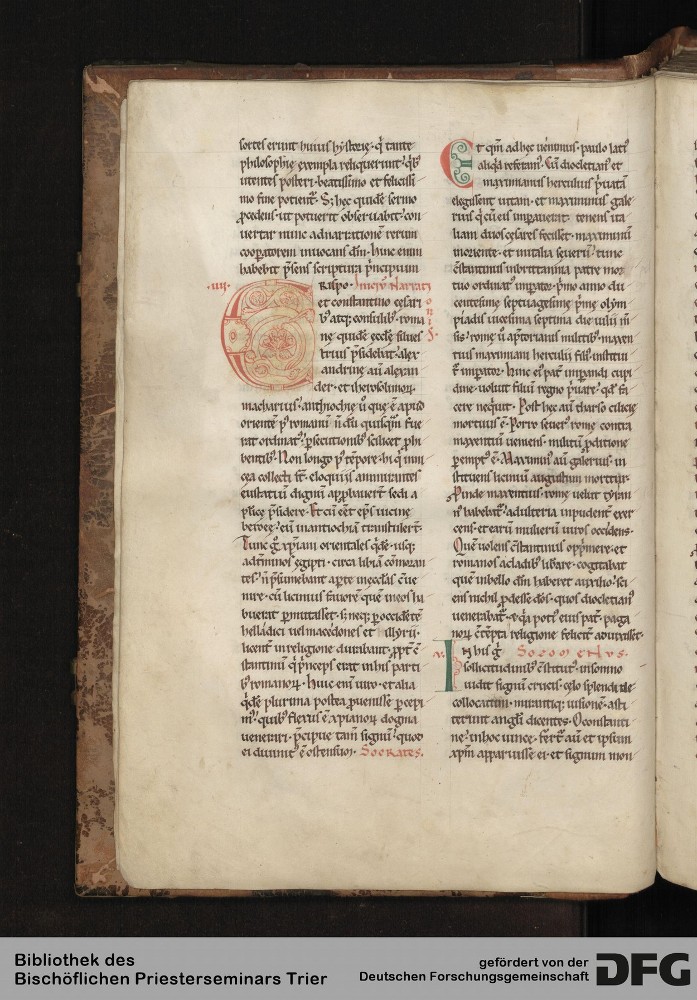 sortes erunt huius hystorię· q̇ tante
philosophię exempla reliquerunt· qb'
utentes posteri· beatissimo et felicissi
mo fine potient̄· S; hec quidē sermo
p̄cedens· ut potuerit obseruabit· con
uertar nunc ad narrationē rerum
cooperatorem inuocans dn̄m· hinc enim
habebit p̄sens scriptura p̄ncipium
·iiij· CRISPO· Incip̄ Narratio
et constantino cesari
b' atq; consulib'· roma
nę quidē ecclę silues
trius p̄sidebat· alex
andrinę aū alexan
der· et iherosolimoꝝ
macharius· anthiochię ū que ē apud
orientē p̄ romanū n̄ dū quisquā fue
rat ordinat'· p̄secutionib' scilicet phi
bentib'· Non longo p' tēpore· hi q̇ in ni
cea collecti st̄· eloquiis ammirantes
eustatiū dignū app̄bauer̄t sedi a
plicę p̄sidere· Et cū eēt ep̄s uicinę
beroeę· eū in antiochiā transtuler̄t·
Tunc g̊ xp̄iani orientales qdē· usq;
ad t̄minos egipti· circa libiā cōmoran
tes· n̄ p̄sumebant apte in ecclās c̄ue
nire· cū licinius fauorē quē in eos ha
buerat p̄mutasset· s; neq; p̄ occidētē
helladici uel macedones et illyrii·
licent̄ in religione durabant· ppt̄ c̄
stantinū q̇ p̄nceps erat in his parti
b' romanoꝝ· Huic enī uiro· et alia
qdē plurima postea puenisse p̄cepi
m'· quib' flexus ē xp̄ianoꝝ dogma
uenerari· p̄cipue tam̄ signū· quod
ei diuinit' ē ostensum· SOCRATES·
Et qm̄ ad hęc uenimus· paulo lati'
aliq̇d referam'· Cū dioclecian' et
maximianus herculius p̄uatā
elegissent uitam· et maximinus gale
rius q̇ cū eis imp̄auerat· tenens ita
liam· duos cęsares fecisset· maximinū
in oriente· et in italia seuerū· tunc
c̄stantinus in brittannia patre mor
tuo ordinat' imp̄ator· p̄mo anno du
centesimę septuagesimę p̄mę olym
piadis· uicesima septima die iulii m̄
sis· romę ū a p̄torianis militib'· maxen
tius maximiani herculii fili'· institui
t̄ imp̄ator· Hinc ei' pat̄ imp̄andi cupi
dine· uoluit filiū regno p̄uare· qd' fa
cere neq̇uit· Post hęc aū tharso cilicię
mortuus ē· Porro seuer' romę contra
maxentiū ueniens· militū p̄ditione
p̄empt' ē· Maximin' aū galerius· in
stituens liciniū augustum· moritur·
Pinde maxentius· romę uelut tyran
n' habebat'· adulteria impudent̄ exer
cens· et earū mulierū uiros occidens·
Quē uolens c̄stantinus opp̄mere· et
romanos a cladib' libare· cogitabat
quē in bello dn̄m haberet auxilio· sci
ens nichil p̄desse dōs· quos dioclecian'
uenerabat̄· Et q̇a poti' eius pat̄· paga
noꝝ c̄tēpta religione· felicit̄ aduixisset·
·v· IN his g̊ SOZOMENVS·
sollicitudinib' c̄stitut'· in somno
uidit signū crucis· cęlo splendide
collocatum· mirantiq; uisionē· asti
terunt angli dicentes· O constanti
ne· in hoc uince· Fert̄ aū et ipsum
xp̄m apparuisse ei· et signum mon
Bibliothek des
Bischöflichen Priesterseminars Trier
gefördert von der
Deutschen Forschungsgemeinschaft
DFG